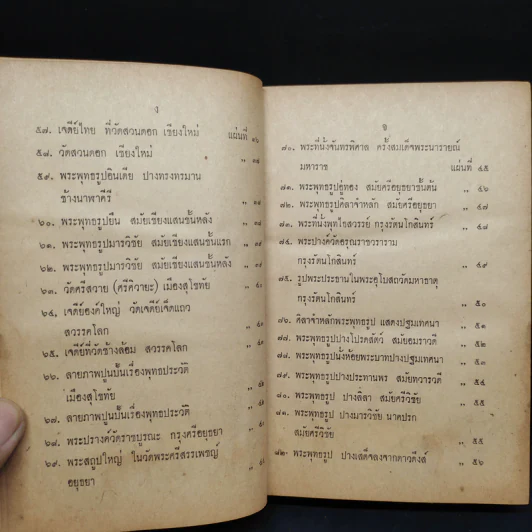 ง
๕๗. เจดีย์ไทย ที่วัดสวนดอก เชียงใหม่ แผ่นที่ ๓๖
๕๘. วัดสวนดอก เชียงใหม่ „
๕๙. พระพุทธรูปอินเดีย ปางทรงทรมาน
ช้างนาฬาคีรี „
๖๐. พระพุทธรูปยืน สมัยเชียงแสนชั้นหลัง „
๖๑. พระพุทธรูปมารวิชัย สมัยเชียงแสนชั้นแรก „
๖๒. พระพุทธรูปมารวิชัย สมัยเชียงแสนชั้นหลัง „
๖๓. วัดศรีสวาย (ศรีศิวายะ) เมืองสุโขทัย „
๖๔. เจดีย์องค์ใหญ่ วัดเจดีย์เจ็ดแถว
สวรรคโลก „
๖๕. เจดีย์ที่วัดช้างล้อม สวรรคโลก „
๖๖. ลายภาพปูนปั้นเรื่องพุทธประวัติ
เมืองสุโขทัย „
๖๗. ลายภาพปูนปั้นเรื่องพุทธประวัติ „
๖๘. พระปรางค์วัดราชบูรณะ กรุงศรีอยุธยา „
๖๙. พระสถูปใหญ่ ในวัดพระศรีสรรเพชญ์
อยุธยา „
จ
๗๐. พระที่นั่งจันทรพิศาล ครั้งสมเด็จพระนารายณ์
มหาราช แผ่นที่ ๔๕
๗๑. พระพุทธรูปอู่ทอง สมัยศรีอยุธยาชั้นต้น „ ๔๖
๗๒. พระพุทธรูปศิลาจำหลัก สมัยศรีอยุธยา „ ๔๗
๗๓. พระที่นั่งพุทไธสวรรย์ กรุงรัตนโกสินทร์ „ ๔๘
๗๔. พระปรางค์วัดอรุณราชวราราม
กรุงรัตนโกสินทร์ „ ๔๙
๗๕. รูปพระประธานในพระอุโบสถวัดมหาธาตุ
กรุงรัตนโกสินทร์ „ ๕๐
๗๖. ศิลาจำหลักพระพุทธรูป แสดงปฐมเทศนา „ ๕๑
๗๗. พระพุทธรูปปางโปรดสัตว์ สมัยอมราวดี „ ๕๒
๗๘. พระพุทธรูปนั่งห้อยพระบาทปางปฐมเทศนา „ ๕๓
๗๙. พระพุทธรูปปางประทานพร สมัยทวารวดี „ ๕๔
๘๐. พระพุทธรูป ปางลีลา สมัยศรีวิชัย „ ๕๕
๘๑. พระพุทธรูป ปางมารวิชัย นาคปรก
สมัยศรีวิชัย „ ๕๕
๘๒. พระพุทธรูป ปางเสด็จลงจากดาวดึงส์ „ ๕๖